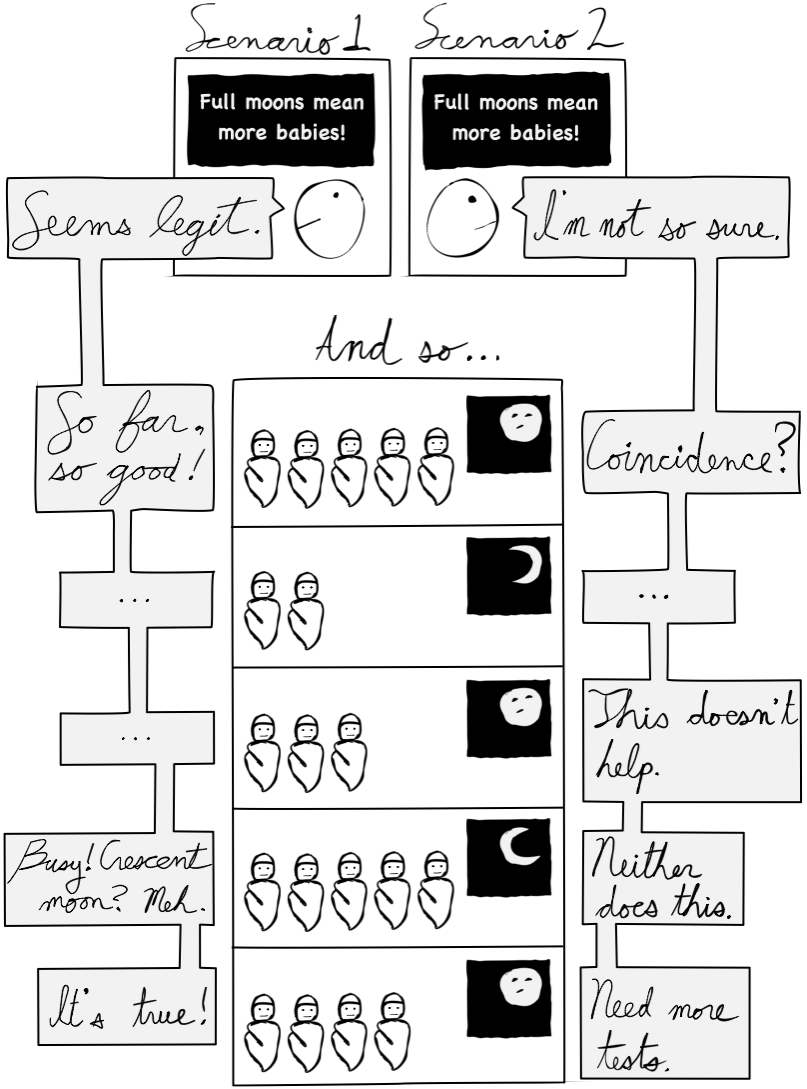 Scenario 1
Full moons mean
more babies!
Seems legit.
Scenario 2
Full moons mean
more babies!
I'm not so sure.
And so...
So far,
so good!
...
...
Busy! Crescent
moon? Meh.
It's true!
Coincidence?
...
This doesn't
help.
Neither
does this.
Need more
tests.